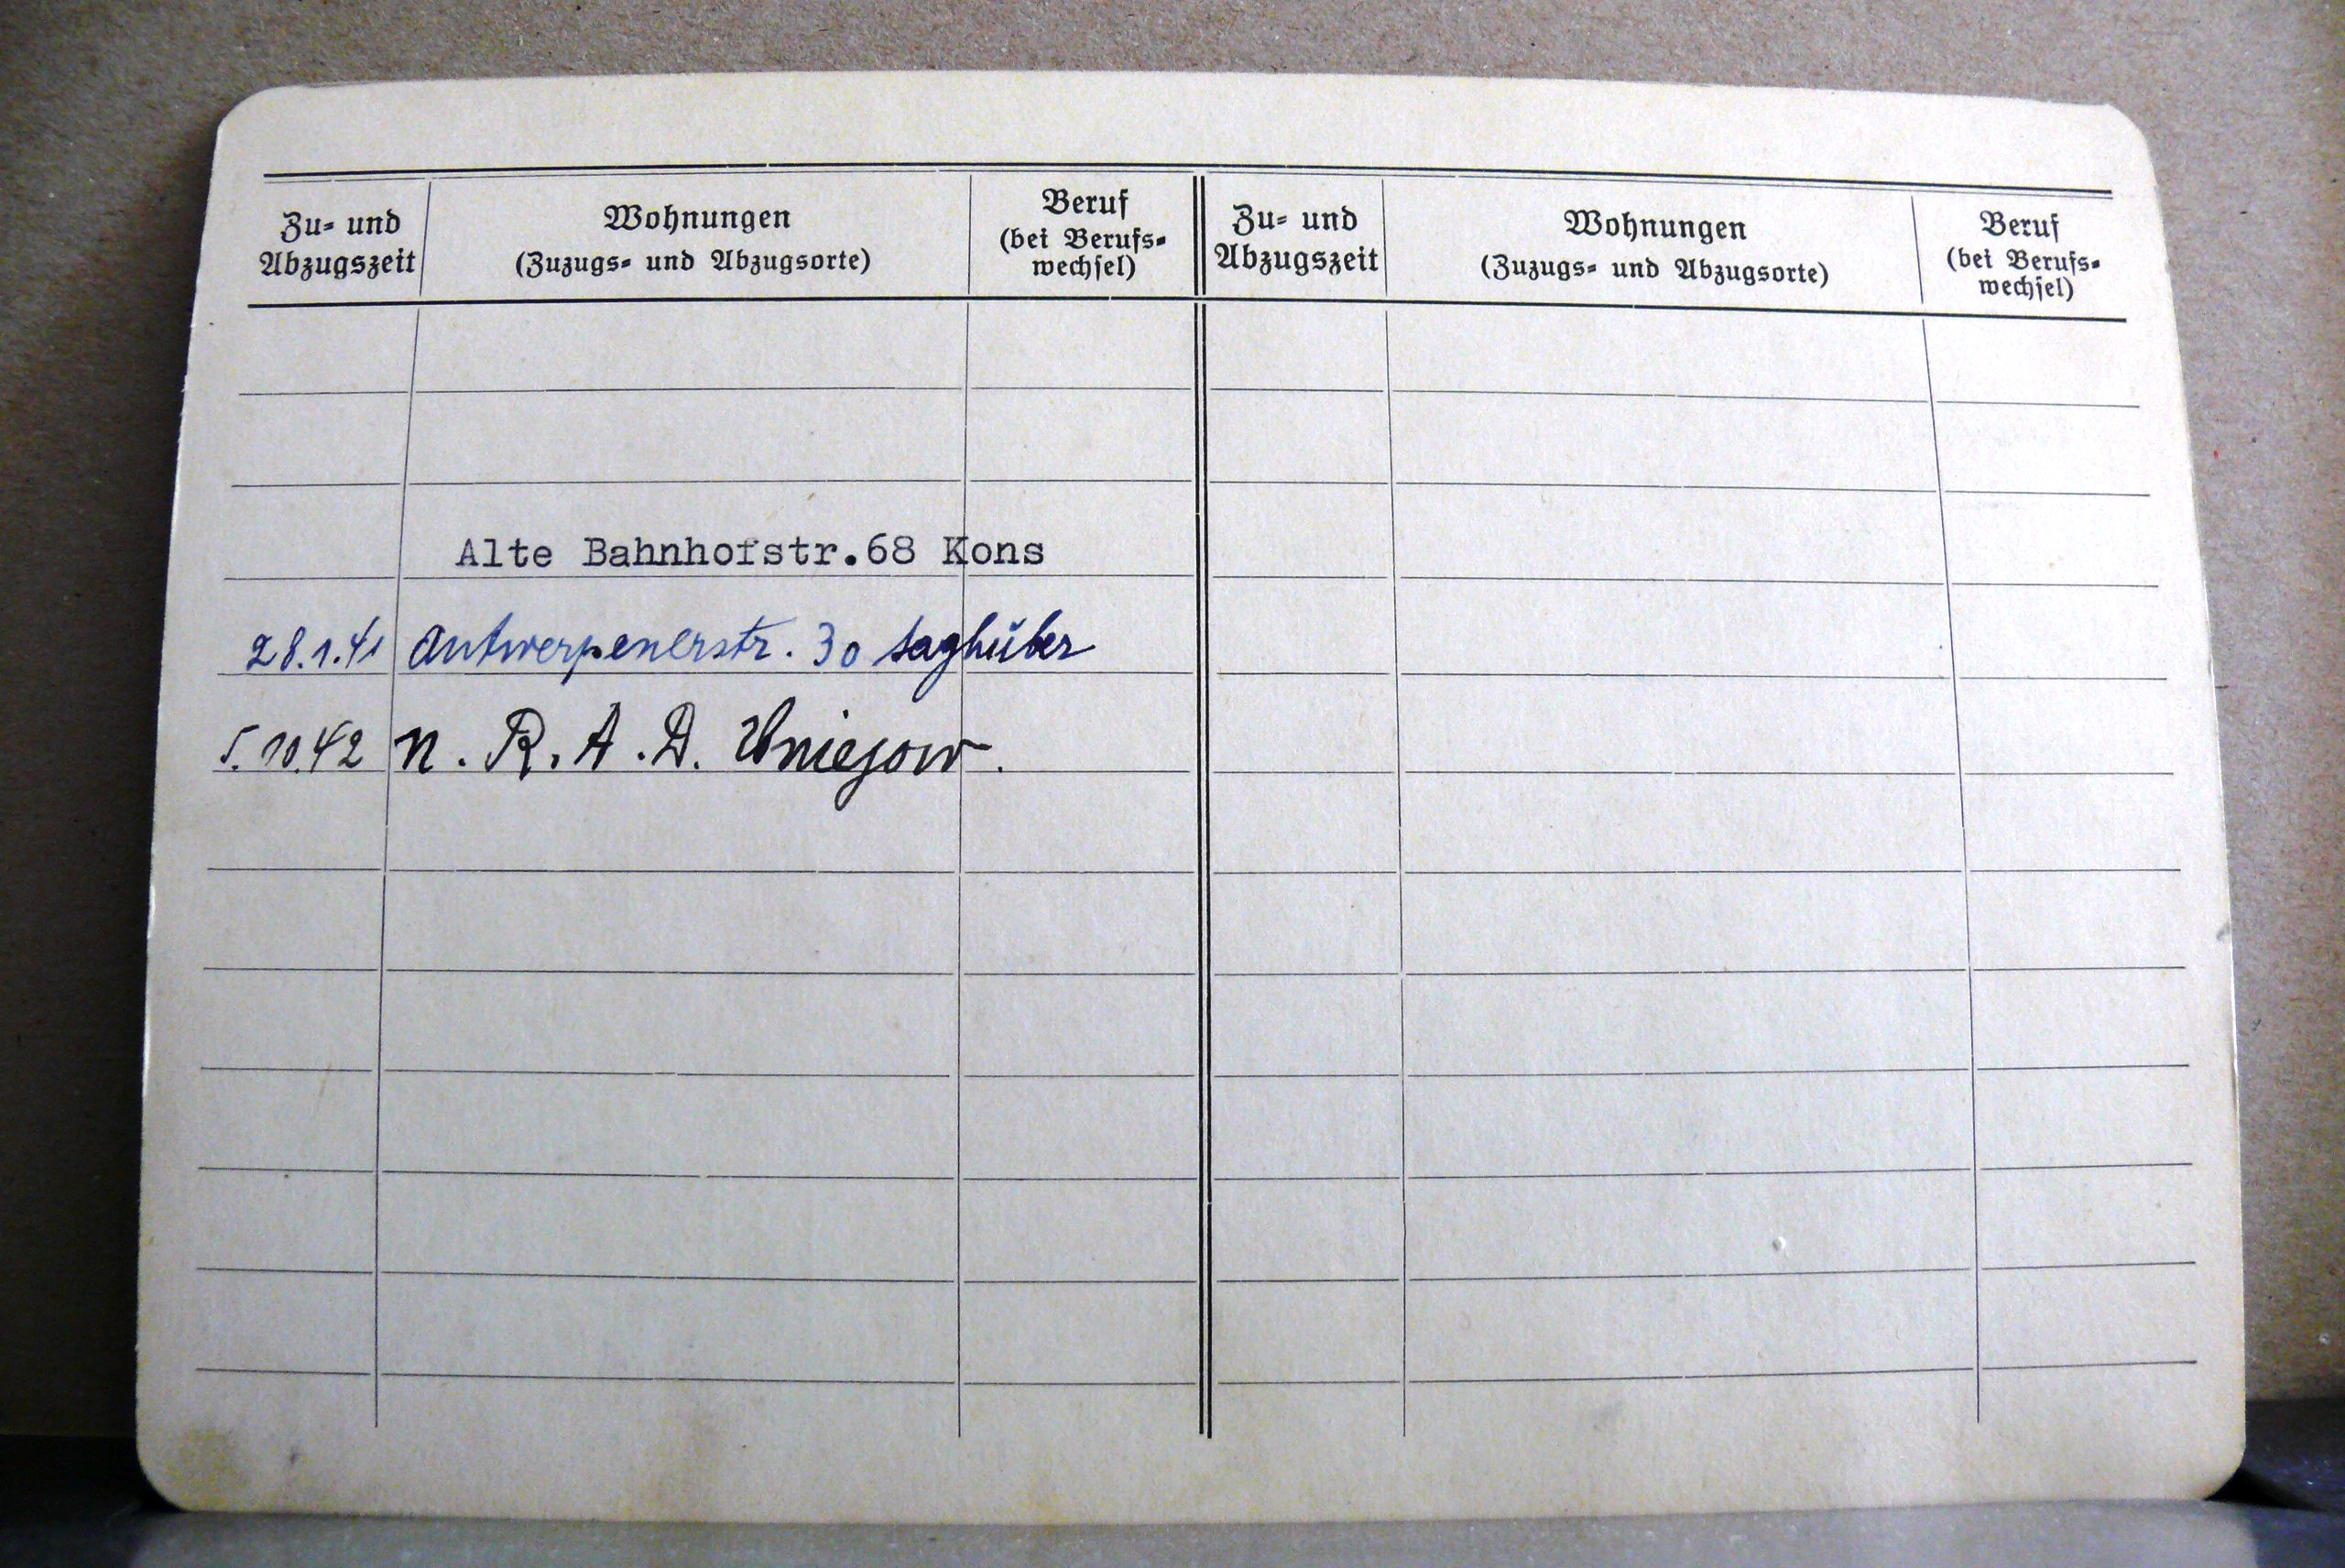 Zu- und Abzugszeit
Wohnungen
(Zuzugs- und Abzugsorte)
Beruf
(bei Berufs-
wechsel)
Zu- und Abzugszeit
Wohnungen
(Zuzugs- und Abzugsorte)
Beruf
(bei Berufs-
wechsel)
Alte Bahnhofstr.68 Kons
28.1.41 Antwerpenerstr. 30
5.10.42 n. R. A. D. Uniejow.